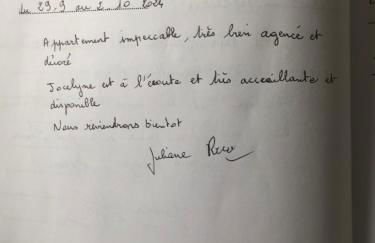 du 29.9 au 2.10 2024
Appartement impeccable, très bien agencé et
décoré
Jocelyne est à l'écoute et très accueillante et
disponible
Nous reviendrons bientôt
Juliane